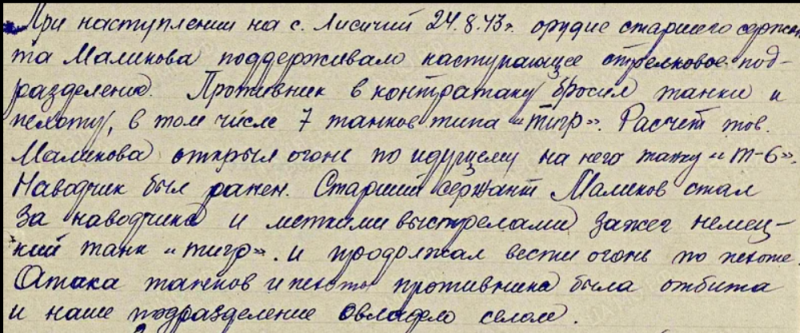 При наступлении на с. Лисичий 24.8.43г. орудие старшего сержан
та Маликова поддерживало наступающее стрелковое под-
разделение. Противник в контратаку бросил танки и
пехоту, в том числе 7 танков типа "тигр". Расчет тов.
Маликова открыл огонь по идущему на него танку "Т-6".
Наводчик был ранен. Старший сержант Маликов стал
за наводчика и меткими выстрелами зажег немец-
кий танк "тигр". и продолжал вести огонь по пехоте.
Атака танков и пехоты противника была отбита
и наше подразделение овладело селом.